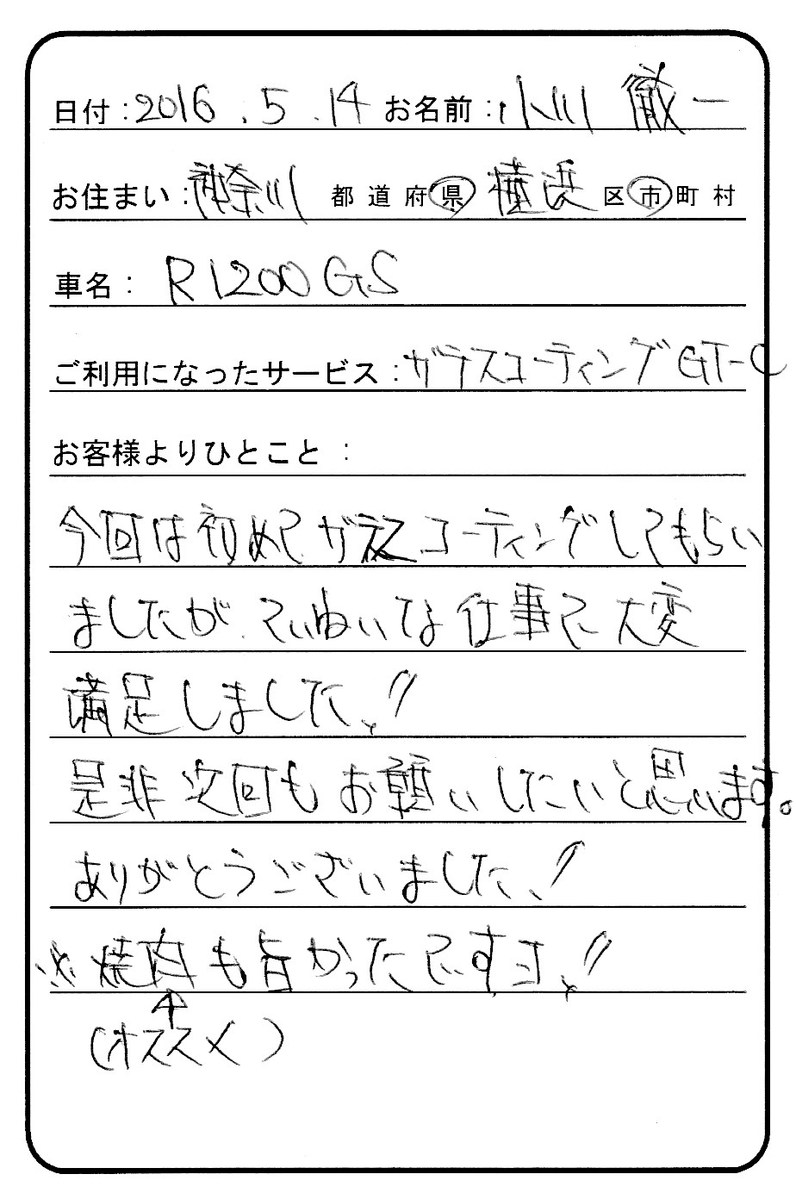 日付：2016．5．14 お名前：小川 徹一
お住まい：神奈川 都道府県 横浜 区市町村
車名：R1200GS
ご利用になったサービス：ガラスコーティングGT-C
お客様よりひとこと：
今回は初めてガラスコーティングしてもらい
ましたが、ていねいな仕事で大変
満足しました!!
是非次回もお願いしたいと思います。
ありがとうございました!!
※焼肉も旨かったですヨ!!
↑
（オススメ）